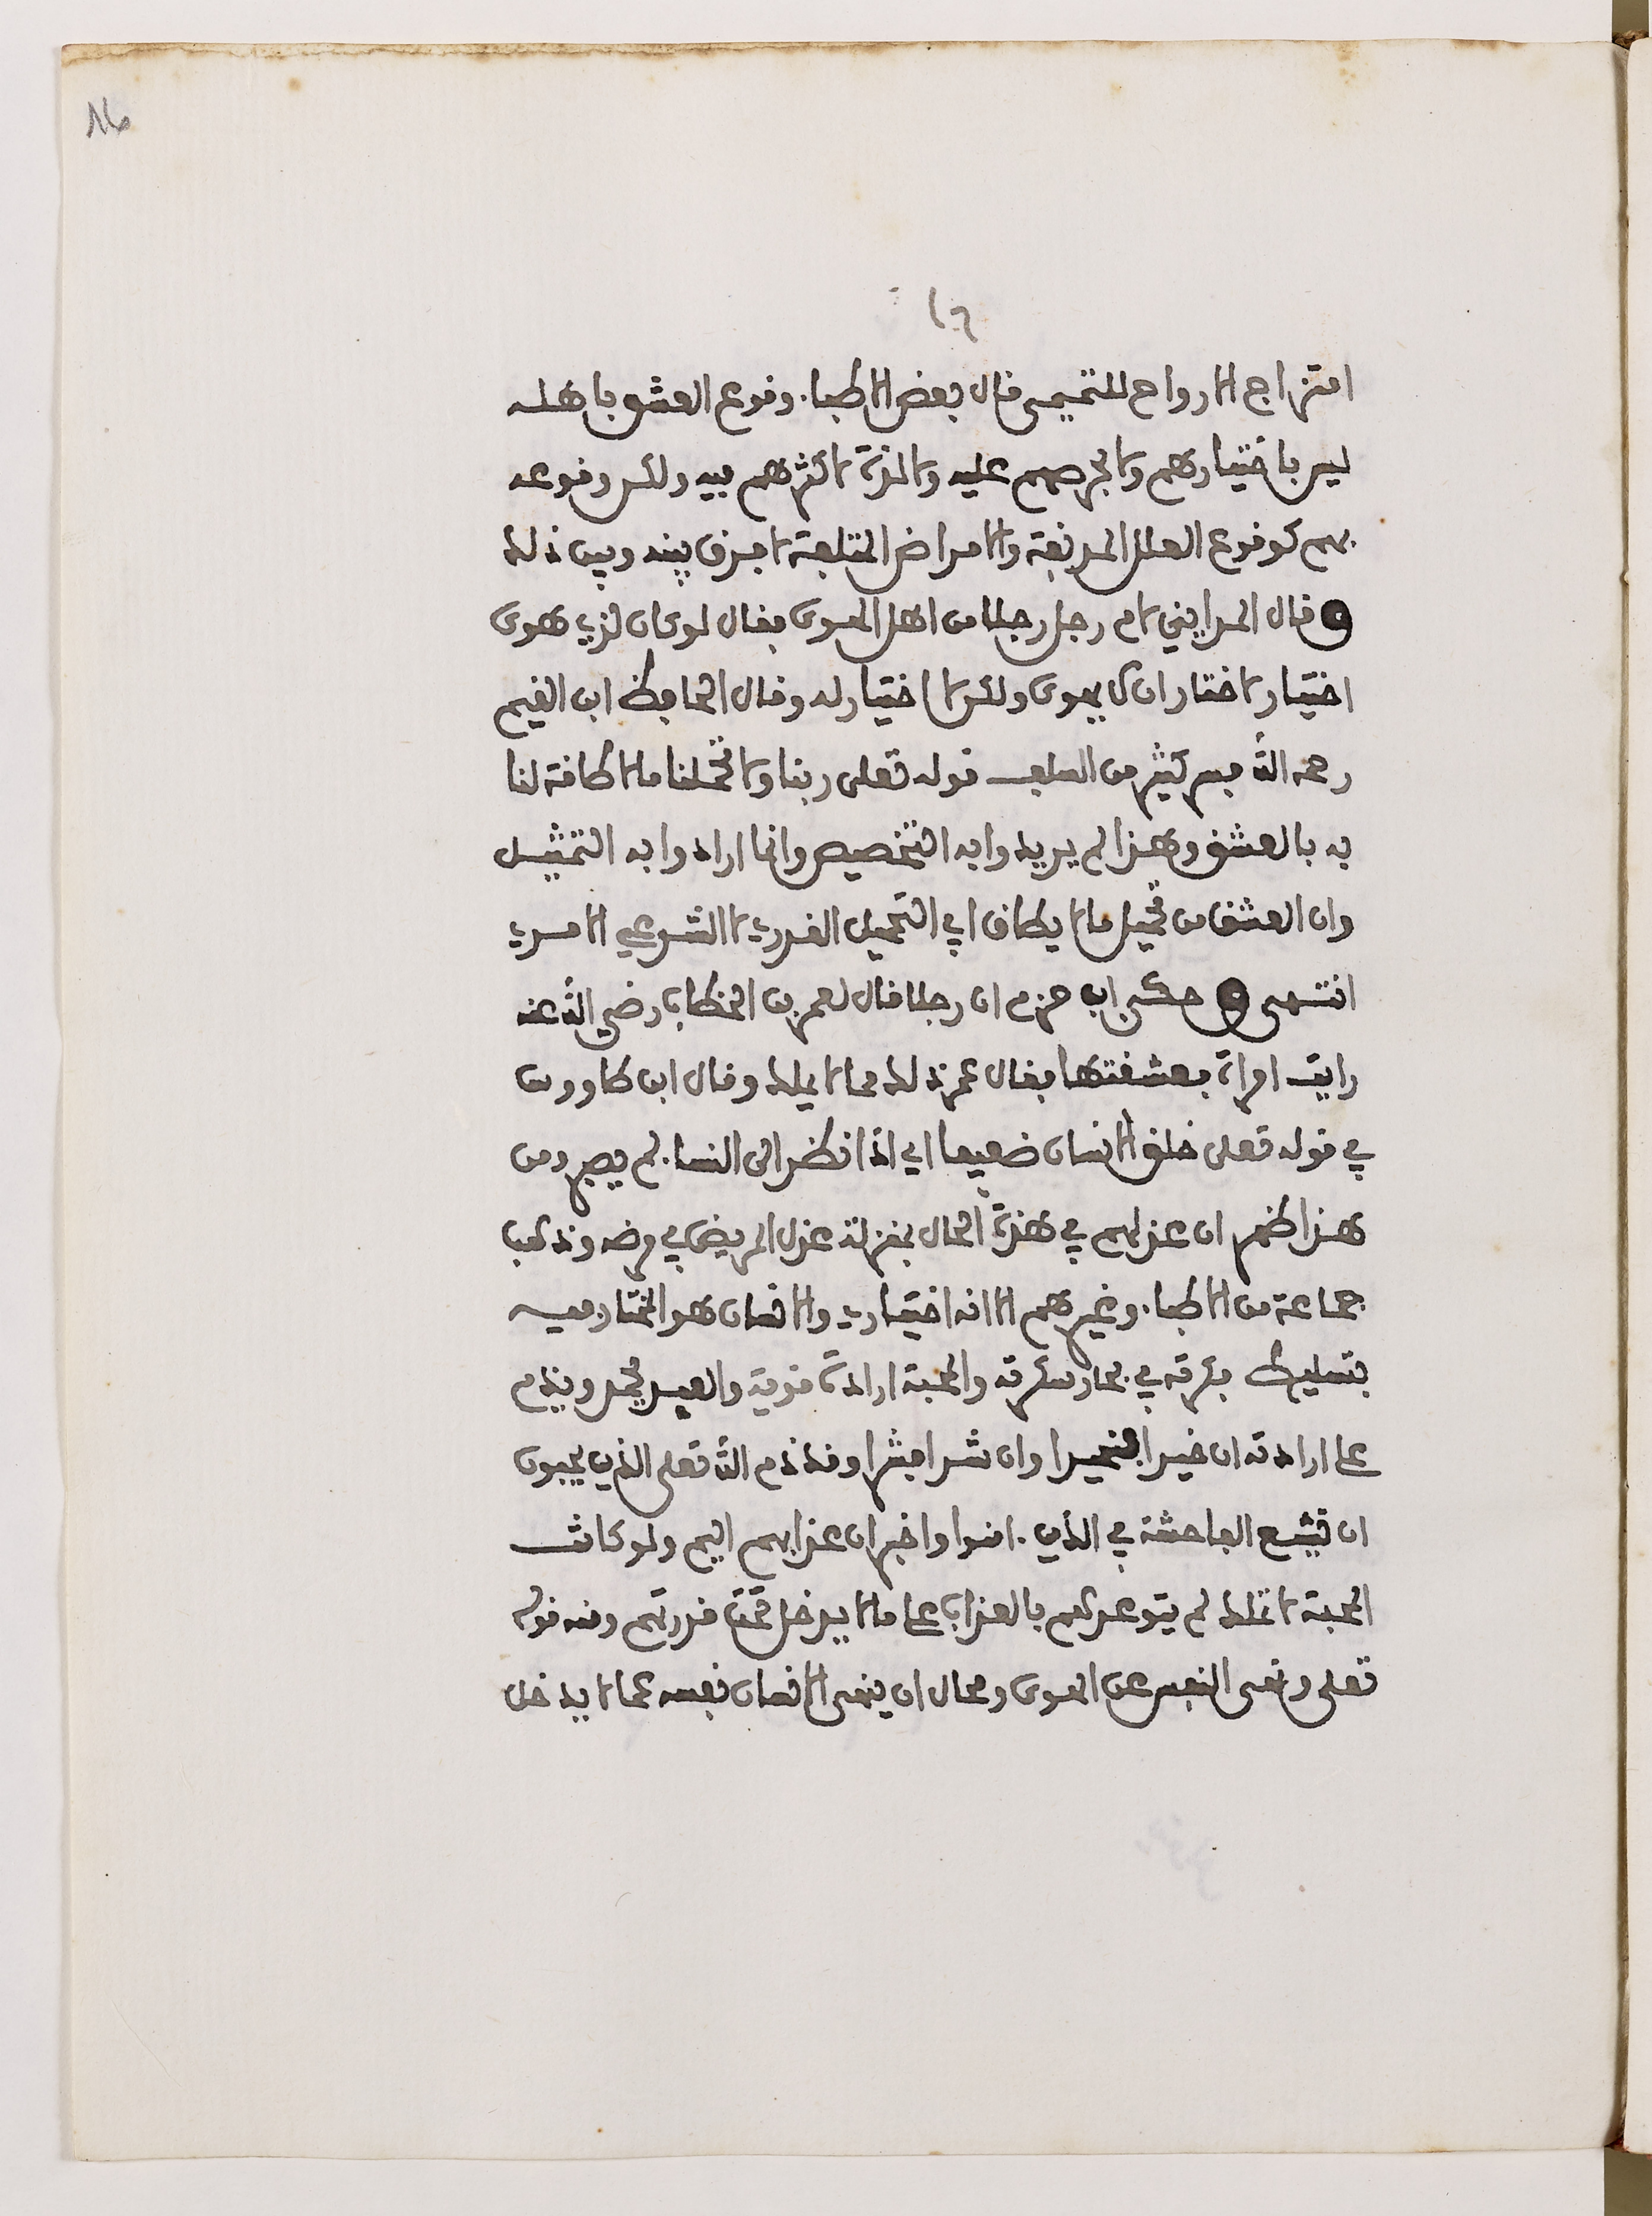 ١٦
امتزاج الارواح للتميمي قال بعض الاطبا. وقوع العشق باهله
ليس باختيارهم ولا بحرصهم عليه ولا لذة لاكثرهم فيه ولكن وقوعه
بهم كوقوع العلل المدنفة والامراض المتلفة لا فرق بينه وبين ذلك
قال المدايني لام رجل رجلا من اهل الهوى فقال لو كان لذي هوى
اختيار لاختار ان لا يهوى ولكن لا اختيار له وقال الحافظ ابن القيم
رحمه الله فسر كثير من السلف قوله تعلى ربنا ولا تحملنا ما لا طاقة لنا
به بالعشق وهذا لم يريدوا به التخصيص وانما ارادوا به التمثيل
وان العشق من تحميل ما لا يطاق اي التحميل القدري لا الشرعي الامري
انتهى حكى ابن حزم ان رجلا قال لعمر بن الخطاب رضي الله عنه
رايت امراة فعشقتها فقال عمر ذلك مما لا يملك وقال ابن طاووس
في قوله تعلى خلق الانسان ضعيفا اي اذا نظر الى النسا. لم يصبر ومن
هذا ظهر ان عذلهم في هذه الحال بمنزلة عذل المريض في مرضه وذهب
جماعة من الاطبا. وغيرهم الا انه اختياري والانسان هو المختار فيه
بتسليط فكرته في محار سكرته والمحبة ارادة قوية والعبد يحمد ويذم
على ارادته ان خيرا فخيرا وان شرا فشرا وقد ذم الله تعلى الذين يحبون
ان تشيع الفاحشة في الذين . امنوا واخبر ان عذابهم اليم ولو كانت
المحبة لا تملك لم يتوعدهم بالعذاب على ما لا يدخل تحت قدرتهم ومنه قوله
تعلى ونهى النفس عن الهوى ومحال ان ينهى الانسان نفسه عما لا يدخل